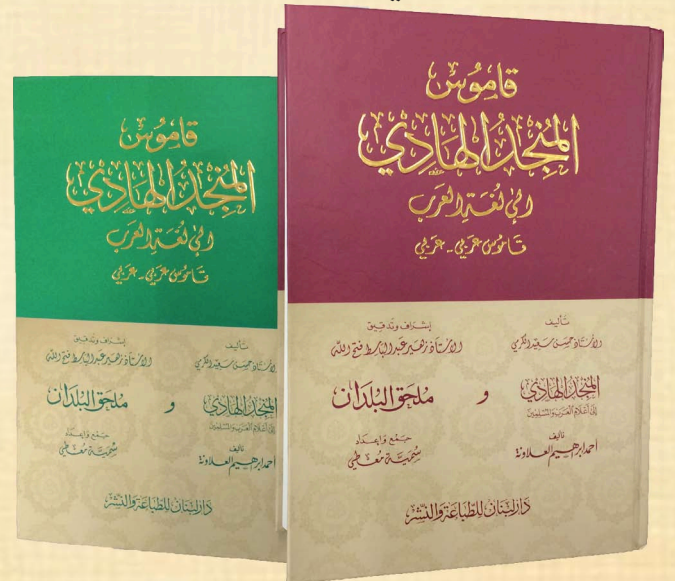 قاموس
المنجد الهادي
إلى لغة العرب
قاموس عربي - عربي
تأليف
الأستاذ حسن سعيد الكرمي
إشراف وتدقيق
الأستاذ زهير عبد الباسط فتح الله
المنجد الهادي
إلى أعلام العرب والمسلمين
و
ملحق البلدان
تأليف
أحمد إبرهيم العلاونة
جمع وإعداد
سمية مغطي
دار لبنان للطباعة والنشر
قاموس
المنجد الهادي
إلى لغة العرب
قاموس عربي - عربي
تأليف
الأستاذ حسن سعيد الكرمي
إشراف وتدقيق
الأستاذ زهير عبد الباسط فتح الله
المنجد الهادي
إلى أعلام العرب والمسلمين
و
ملحق البلدان
تأليف
أحمد إبرهيم العلاونة
جمع وإعداد
سمية مغطي
دار لبنان للطباعة والنشر